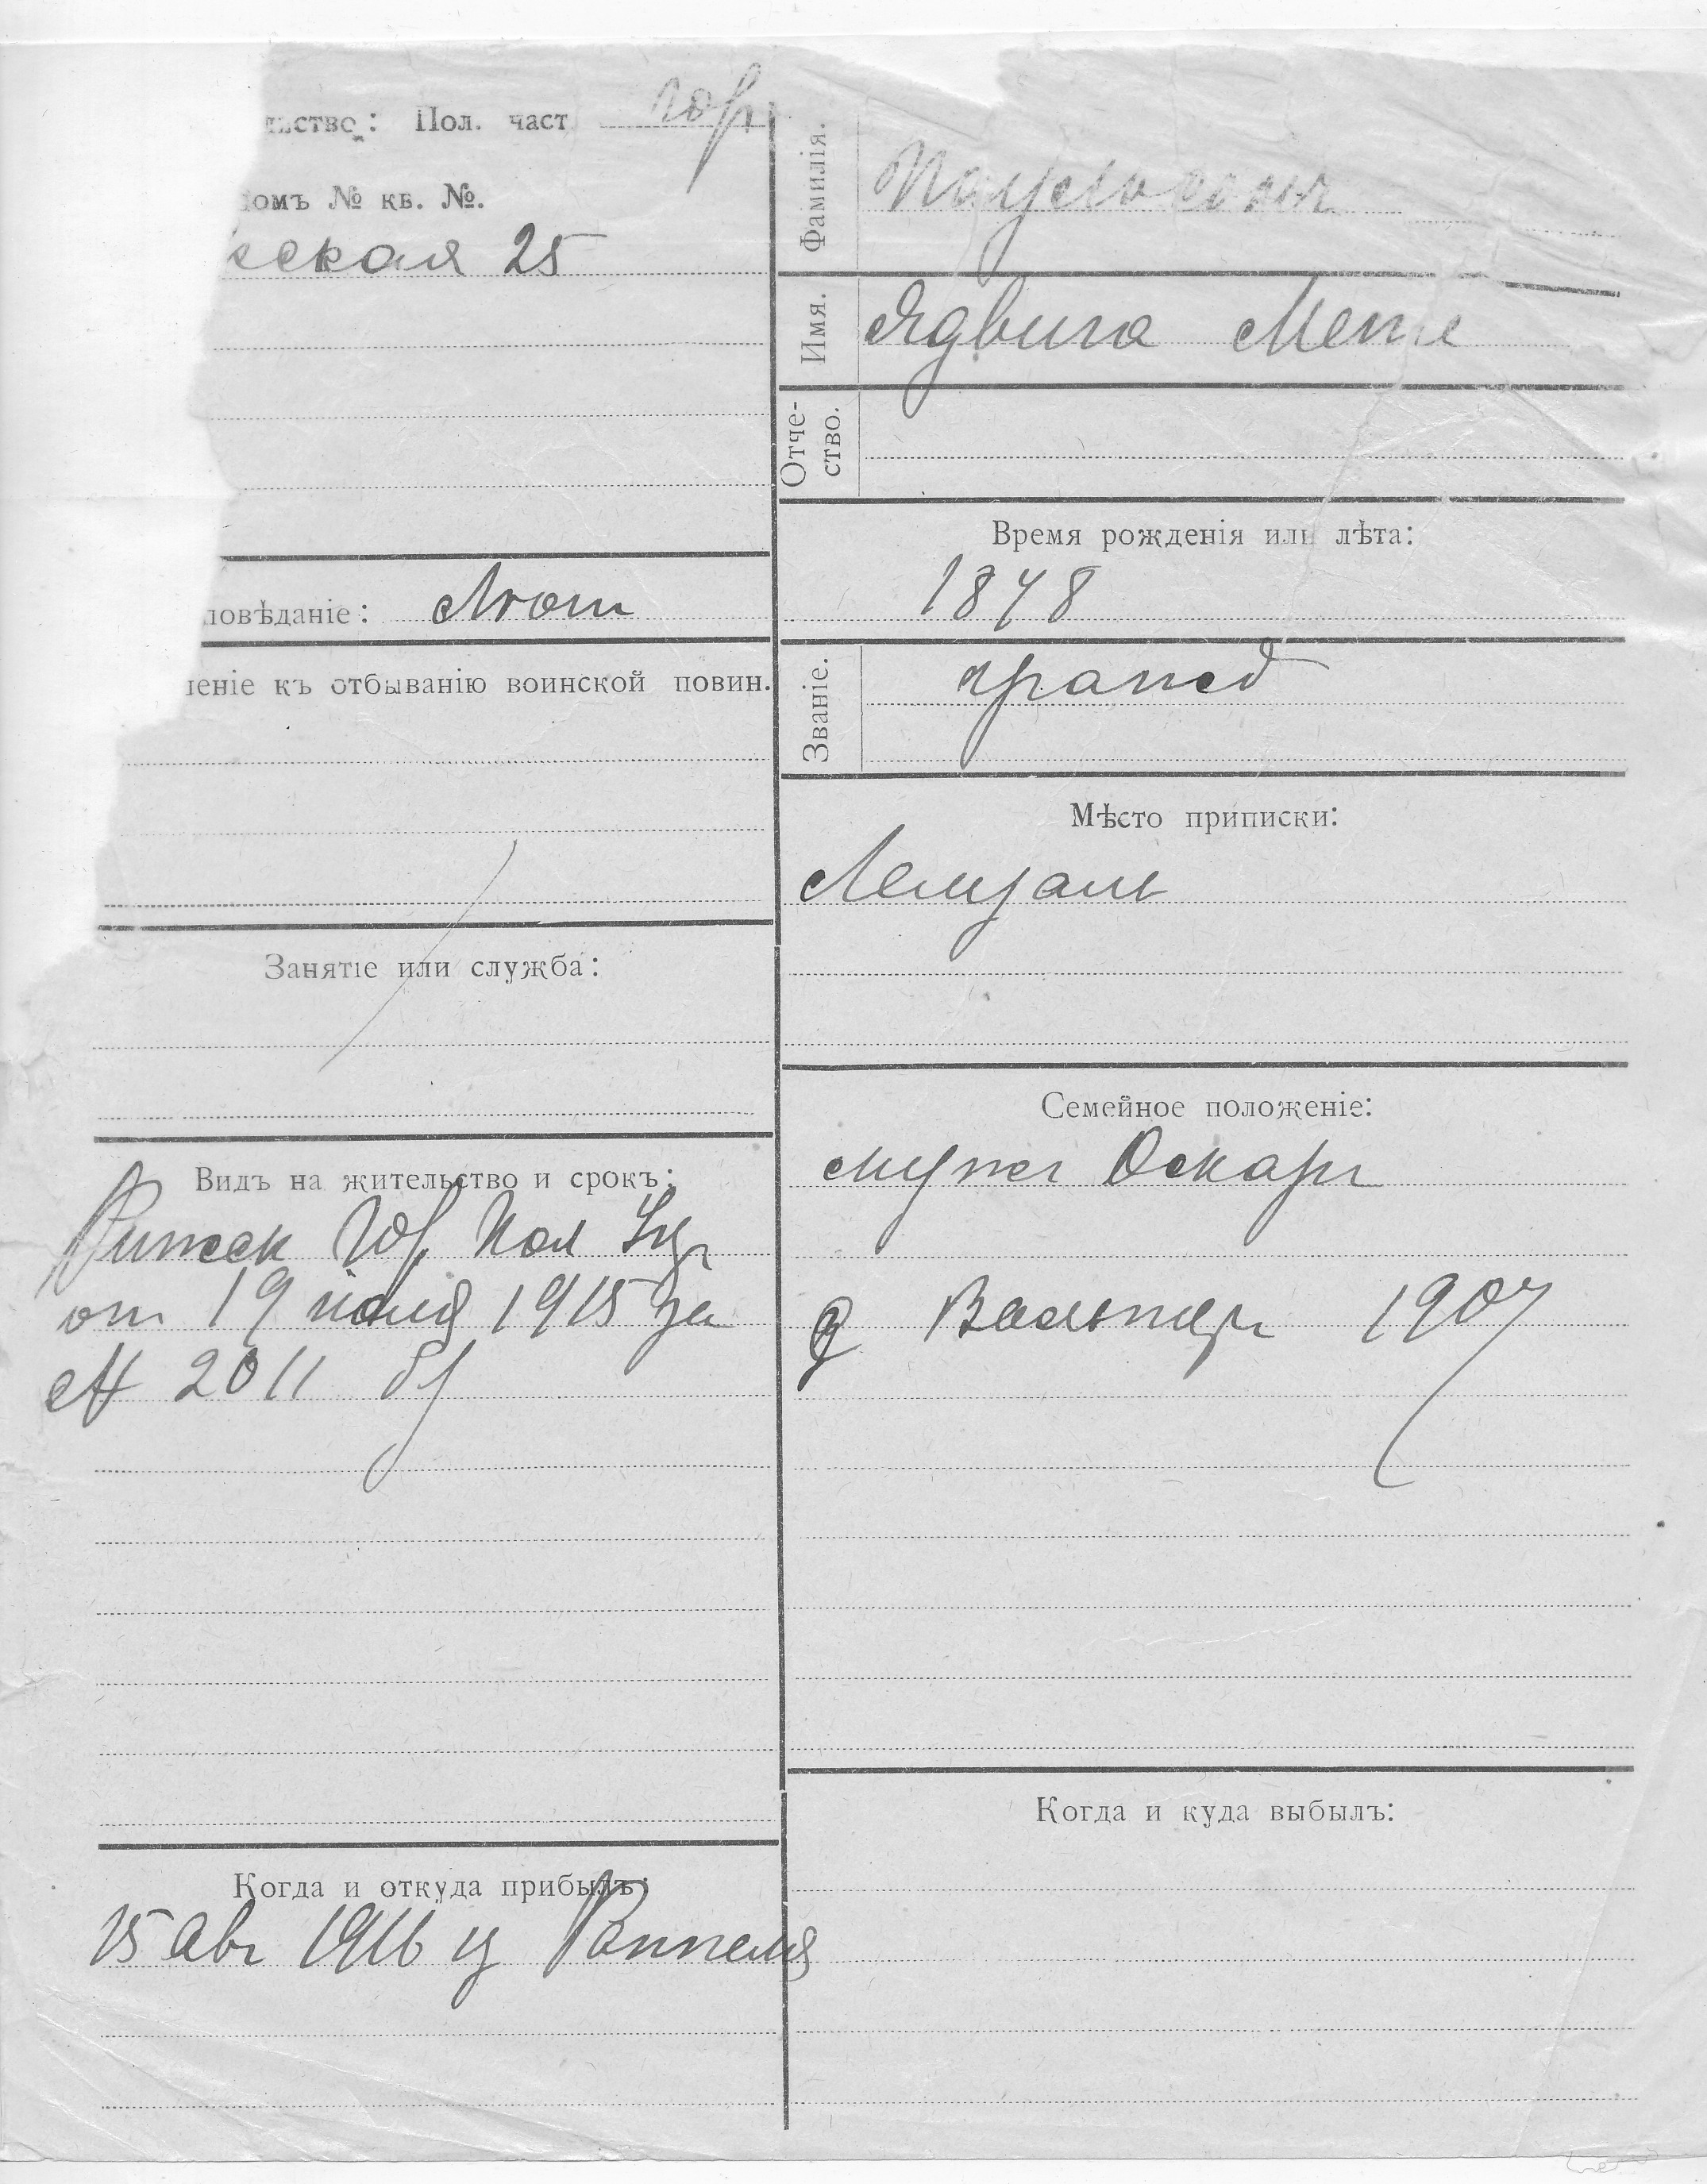 льство: Пол. част гор
домъ № кв. №.
ская 25
повѣданіе: Лют
леніе къ отбыванію воинской повин.
Занятіе или служба:
Видъ на жительство и срокъ:
Рижск Гор Пол
от 19 1915 за
№ 2011 б/
Когда и откуда прибылъ:
15 Авг 1916 из Раппеля
Фамилія.
Имя. Ядвига Мета
Отче-
ство.
Время рожденія или лѣта:
1878
Званіе. гражд
Мѣсто приписки:
Лемзаль
Семейное положеніе:
муж Оскар
Вальтер 1907
Когда и куда выбылъ: